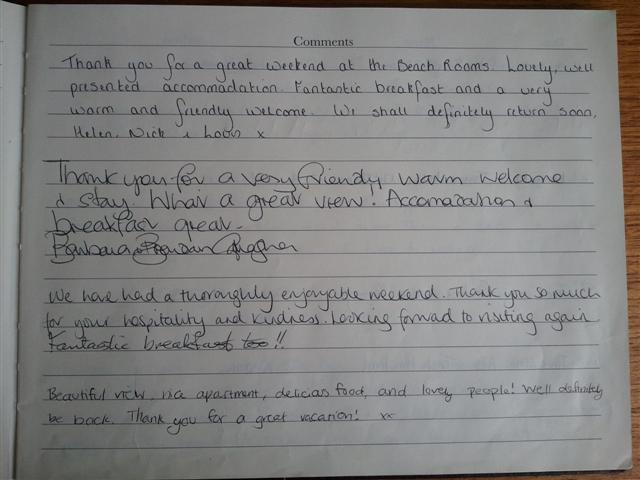 Comments
Thank you for a great weekend at the Beach Rooms. Lovely, well
presented accommadation. Fantastic breakfast and a very
warm and friendly welcome. We shall definitely return soon.
Helen, Nick + x
Thank you for a very friendly warm welcome
+ stay. What a great view! Accomadation +
breakfast great.
Barbara + Brendan
We have had a thoroughly enjoyable weekend. Thank you so much
for your hospitality and kindness. Looking forward to visiting again
Fantastic breakfast too!!
Beautiful view, nice apartment, delicias food, and lovely people! Well definitely
be back. Thank you for a great vacation! xx